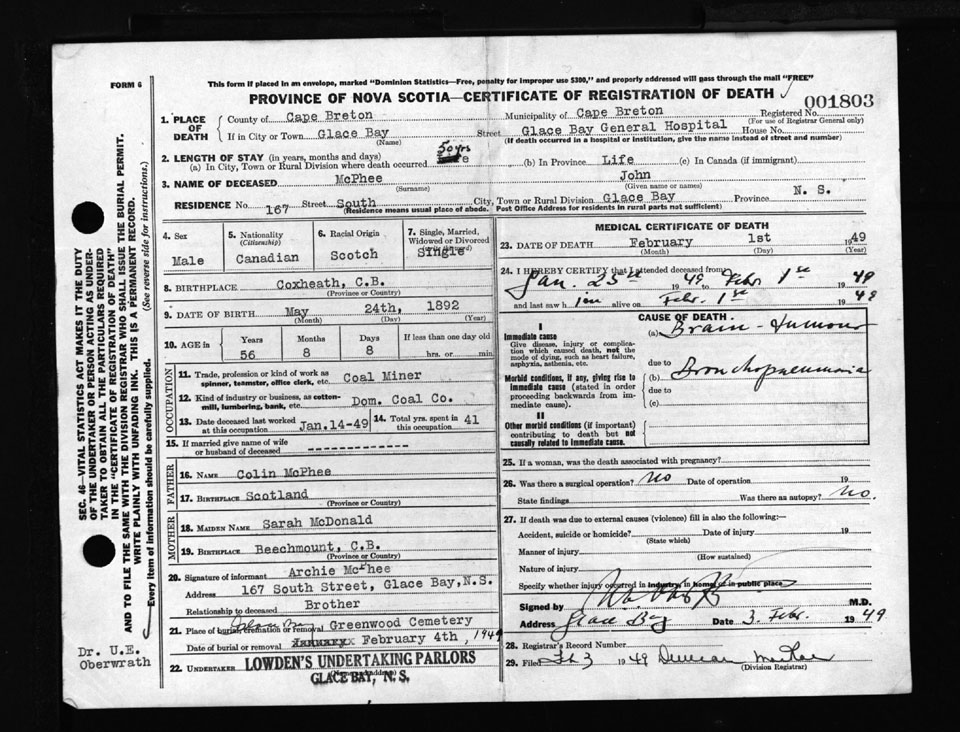 This form if placed in an envelope, marked "Dominion Statistics—Free, penalty for improper use $300," and properly addressed will pass through the mail "FREE"
FORM 6
PROVINCE OF NOVA SCOTIA—CERTIFICATE OF REGISTRATION OF DEATH
001803
1. PLACE OF DEATH
County of Cape Breton Municipality of Cape Breton Registered No.
(For use of Registrar General only)
If in City or Town Glace Bay Street Glace Bay General Hospital House No.
(Name) (If death occurred in a hospital or institution, give the name instead of street and number)
2. LENGTH OF STAY (in years, months and days)
(a) In City, Town or Rural Division where death occurred 50 yrs (b) In Province Life (c) In Canada (if immigrant)
3. NAME OF DECEASED McPhee John
(Surname) (Given name or names)
RESIDENCE No. 167 Street South City, Town or Rural Division Glace Bay Province N. S.
(Residence means usual place of abode. Post Office Address for residents in rural parts not sufficient)
4. Sex
Male
5. Nationality
(Citizenship)
Canadian
6. Racial Origin
Scotch
7. Single, Married, Widowed or Divorced
Single
8. BIRTHPLACE Coxheath, C.B.
(Province or Country)
9. DATE OF BIRTH May 24th, 1892
(Month) (Day) (Year)
10. AGE in
Years Months Days If less than one day old
56 8 8 hrs. or min.
OCCUPATION
11. Trade, profession or kind of work as spinner, teamster, office clerk, etc. Coal Miner
12. Kind of industry or business, as cotton-mill, lumbering, bank, etc. Dom. Coal Co.
13. Date deceased last worked at this occupation Jan.14-49
14. Total yrs. spent in this occupation 41
15. If married give name of wife or husband of deceased
FATHER
16. NAME Colin McPhee
17. BIRTHPLACE Scotland
(Province or Country)
MOTHER
18. MAIDEN NAME Sarah McDonald
19. BIRTHPLACE Beechmount, C.B.
(Province or Country)
20. Signature of informant Archie McPhee
Address 167 South Street, Glace Bay, N.S.
Relationship to deceased Brother
21. Place of burial, cremation or removal Glace Bay Greenwood Cemetery
Date of burial or removal February 4th, 1949
22. UNDERTAKER LOWDEN'S UNDERTAKING PARLORS
GLACE BAY, N. S.
MEDICAL CERTIFICATE OF DEATH
23. DATE OF DEATH February 1st 1949
(Month) (Day) (Year)
24. I HEREBY CERTIFY that I attended deceased from
Jan. 25th 1949 to Febr 1st 1949
and last saw him alive on Febr. 1st 1949
CAUSE OF DEATH
I
Immediate cause
Give disease, injury or complication which caused death, not the mode of dying, such as heart failure, asphyxia, asthenia, etc.
(a) Brain-tumour
due to
Morbid conditions, if any, giving rise to immediate cause (stated in order proceeding backwards from immediate cause).
(b) Bronchopneumonia
due to
(c)
II
Other morbid conditions (if important) contributing to death but not causally related to immediate cause.
25. If a woman, was the death associated with pregnancy?
26. Was there a surgical operation? No Date of operation 19
State findings Was there an autopsy? No.
27. If death was due to external causes (violence) fill in also the following:—
Accident, suicide or homicide? Date of injury 19
(State which)
Manner of injury
(How sustained)
Nature of injury
Specify whether injury occurred in industry, in home, or in public place
Signed by M.D.
Address Glace Bay Date 3. Febr. 1949
28. Registrar's Record Number
29. Filed Feb 3 1949 Duncan MacRae
(Division Registrar)
SEC. 46—VITAL STATISTICS ACT MAKES IT THE DUTY
OF THE UNDERTAKER OR PERSON ACTING AS UNDER-
TAKER TO OBTAIN ALL THE PARTICULARS REQUIRED
IN THE "CERTIFICATE OF REGISTRATION OF DEATH"
AND TO FILE THE SAME WITH THE DIVISION REGISTRAR WHO SHALL ISSUE THE BURIAL PERMIT.
WRITE PLAINLY WITH UNFADING INK. THIS IS A PERMANENT RECORD.
Every item of information should be carefully supplied. (See reverse side for instructions.)
Dr. U.E.
Oberwrath